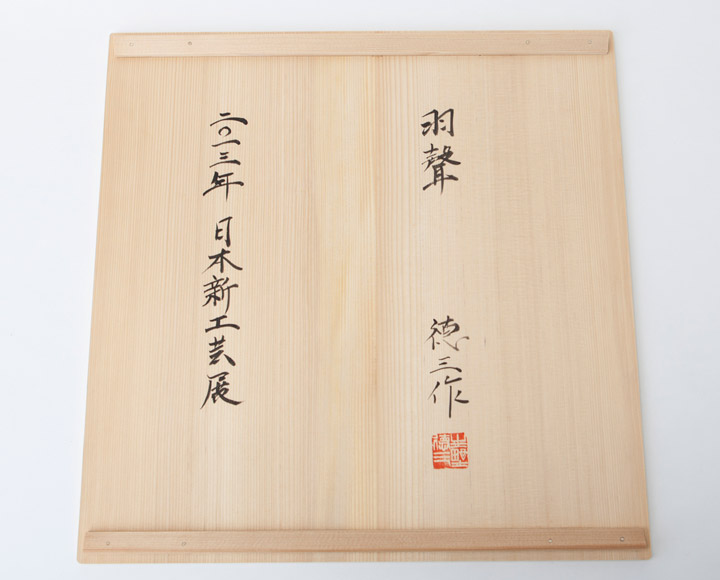 羽聲
徳三作
二〇一三年 日本新工芸展